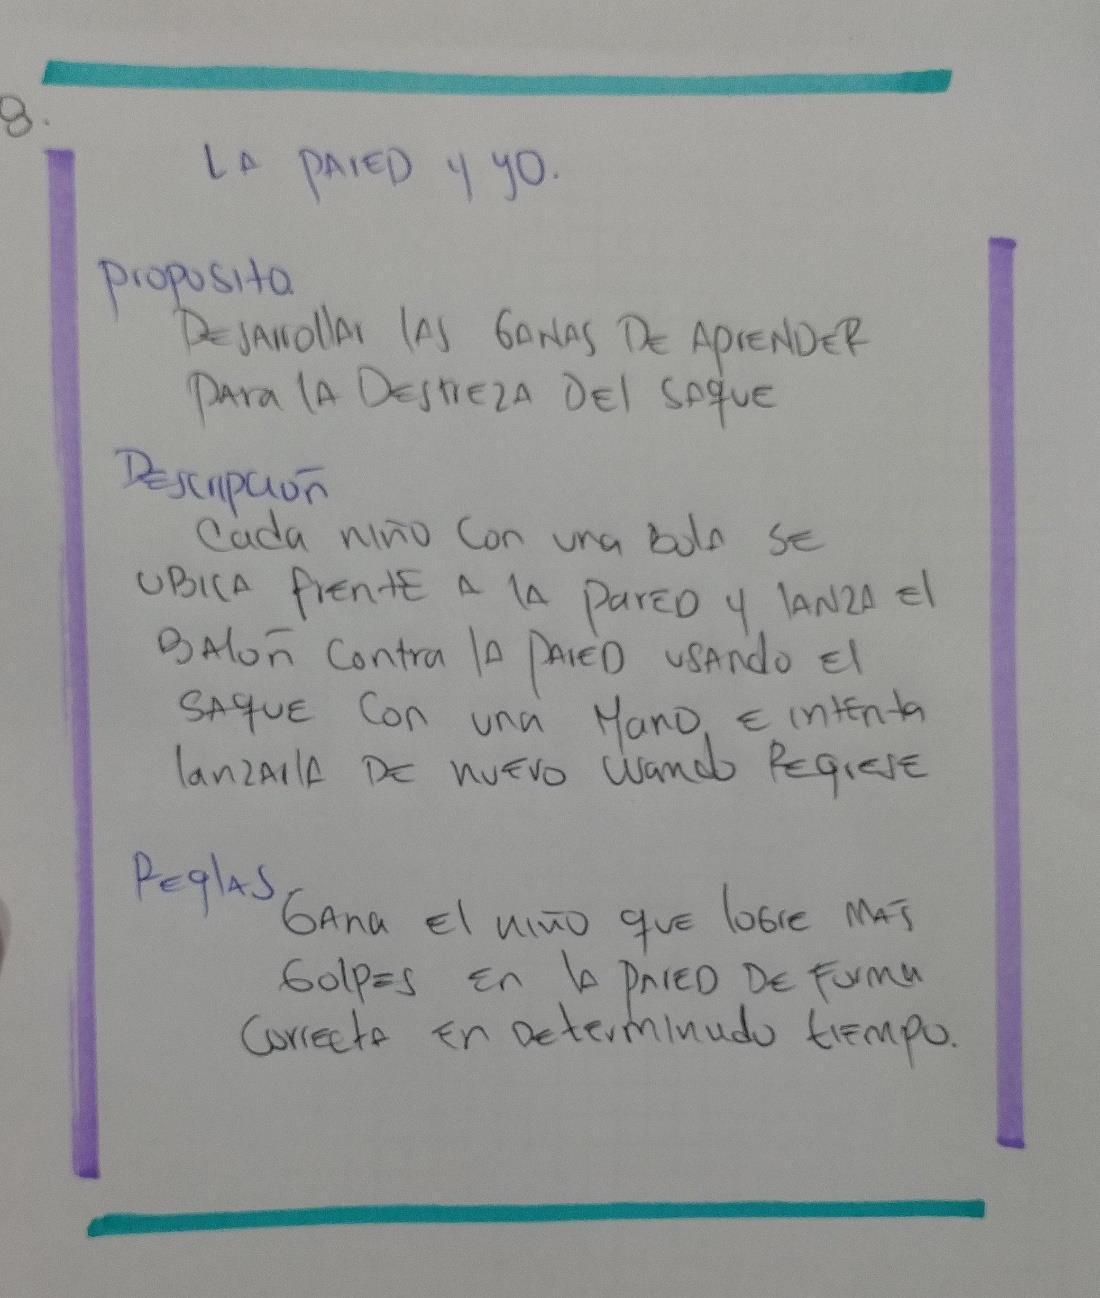 8.
LA PARED y yo.
Proposito
DESARROllAR lAS GANAS DE APRENDER
PARa lA DESTREZA DEl SAQUE
DEscripción
Cada niño Con una bola SE
UBICA frENtE A lA PARED y lANZA El
BAlón Contra lA PARED USANdo El
SAQUE Con una MANO, E intEnta
lanzARlA DE nuEvo cuando REgrESE
REglAS
GAna El niño quE loGrE MAS
GolpES En lA PARED DE Forma
CorrectA En DEterminado tiEMpo.